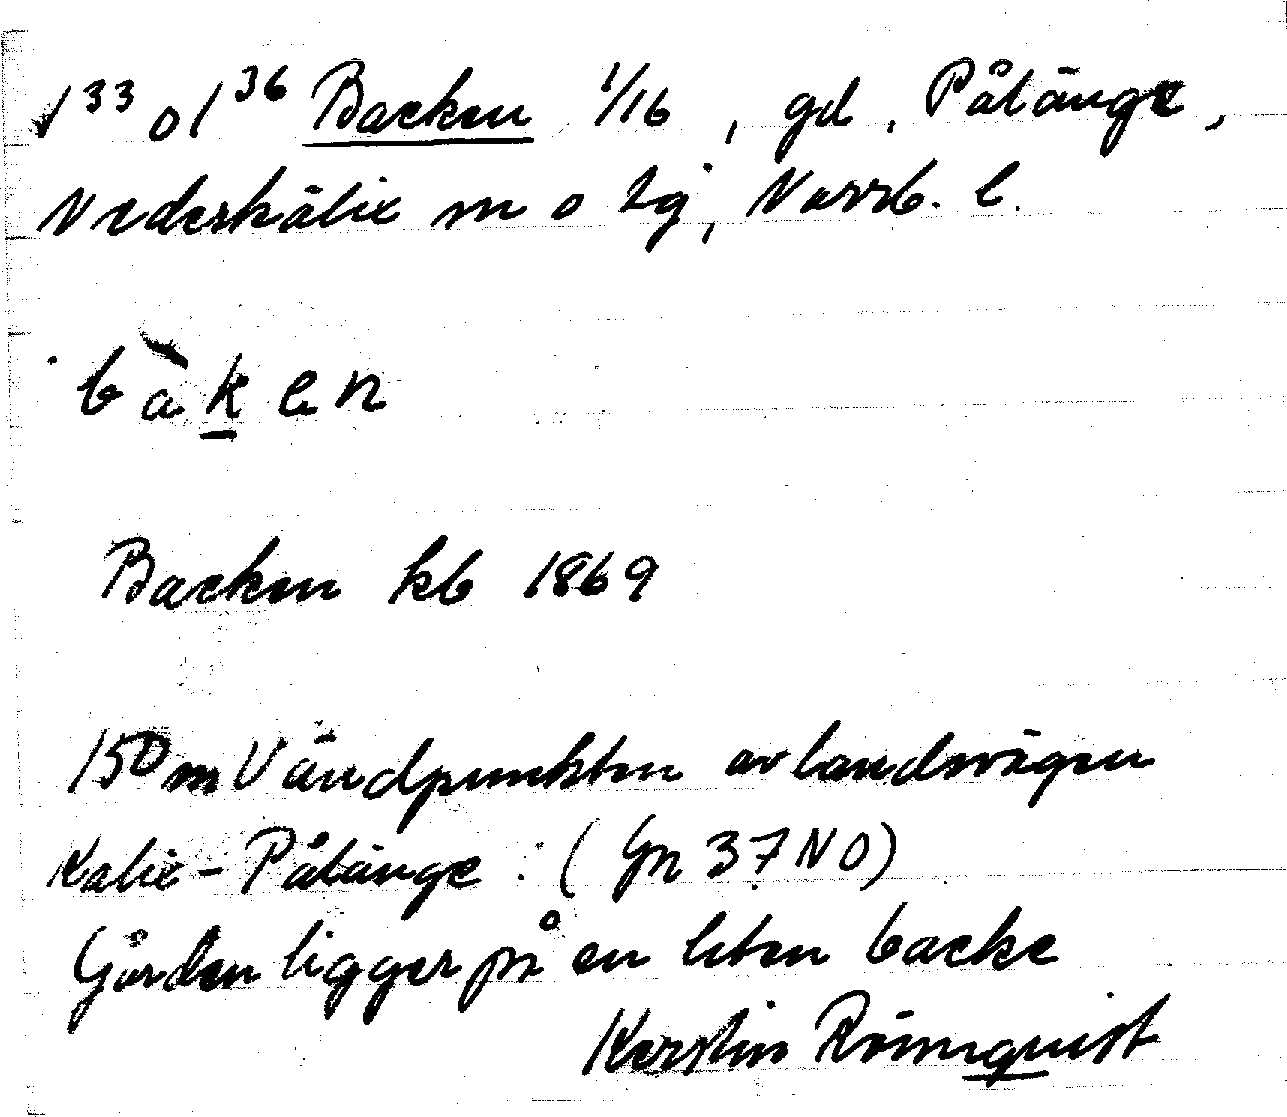 1³³ o 1³⁶ Backen 1/16, gd, Pålänge,
Nederkälix sn o tg, Norrb. l.
bàken
Backen kb 1869
150 m V ändpunkten av landsvägen
Kalix - Pålänge. (Gn 37 NO)
Gården ligger på en liten backe
Kerstin Rönnquist